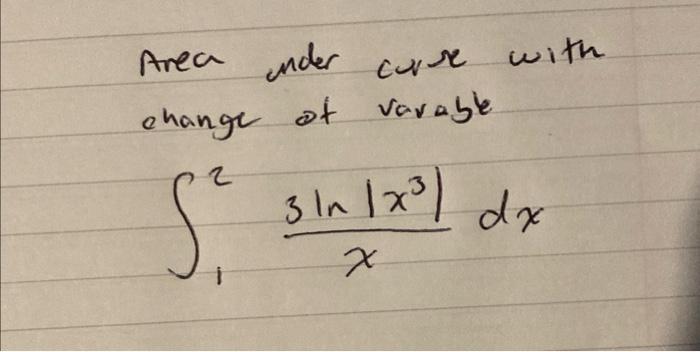 Area under curve with
change of varable
∫₁² 3 ln |x³| / x dx